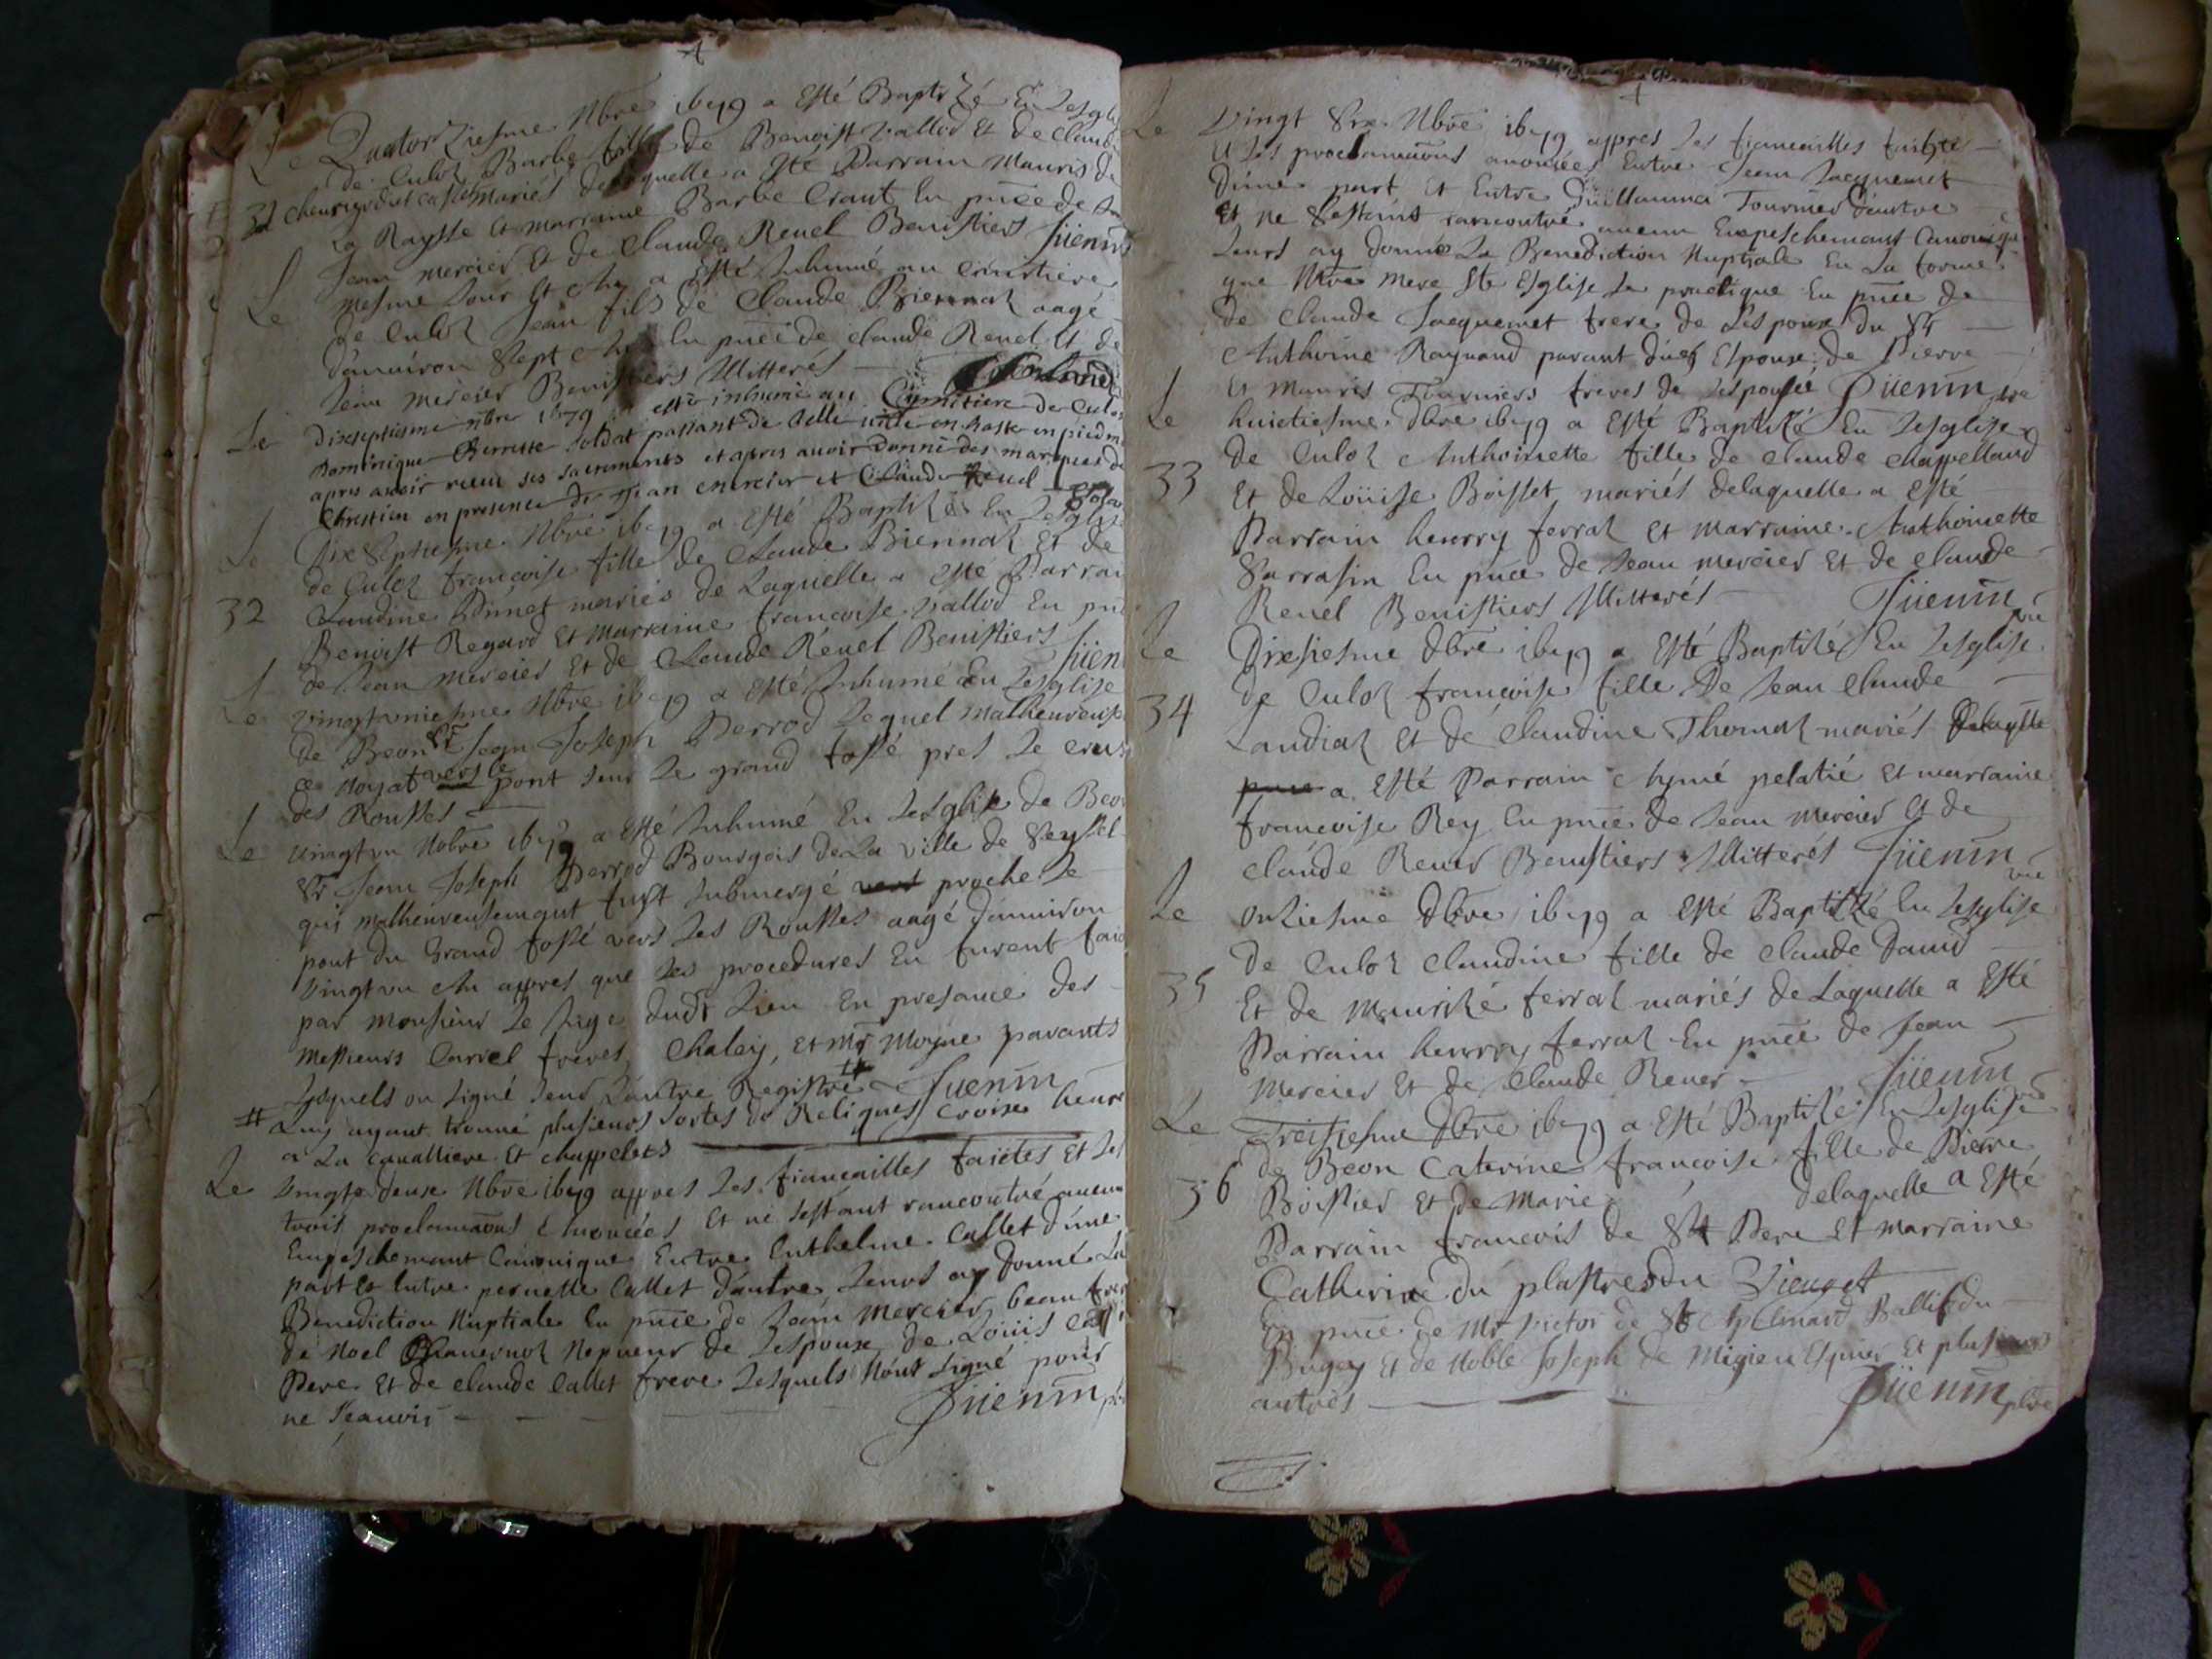 Le Quatorziesme Nbre 1679 a Esté Baptizé En Lesgli
de Culoz Barbe fille de Benoist vallod Et de Claud
31 mariés delaquelle a Esté Parrain Mauris de
la Raysse Et marraine Barbe Crant En pnce de
Jean mercier Et de Claude Reuel Benistiers Jüenin
Le mesme Jour Et An a Esté Inhumé au Cimitiere
de Culoz Jean fils de Claude Biennaz aagé
d'anuiron Sept En pnce de claude Reuel Et de
Jean mercier Benistiers Illitterés
Le Dixseptiesme nbre 1679 a esté inhumé au Cymitiere de Culo
Dominique soldat passant de
apres auoir receu ses sacrements et apres auoir donné des marques de
Chrestien en presence de Jean mercier et Claude Reuel
Le Dix Septiesme Nbre 1679 a Esté Baptizée En Lesglise
de Culoz françoise fille de Claude Biennaz Et de
32 Claudine Pinnet mariés de Laquelle a Esté Parrai
Benoist Regard Et marraine francoise vallod En pn
de Jean mercier Et de Claude Reuel Benistiers Jüen
Le vingtuniesme Nbre 1679 a Esté Inhumé En Lesglise
de Beon Sr Jean Joseph Perrod Lequel malheureuse
ce noyat vers le pont Seur Le grand fossé pres Le creu
des Rousses
Le vingt vn Nobre 1679 a Esté Inhumé En Lesglise de Beon
Sr Jean Joseph Perrod Bourgois de La ville de Seyssel
qui malheureusemant fust submergé vers proche Le
pont du Grand fossé vers Les Rousses aagé d'anuiron
vingt vn An appres que Les procedures En furent faic
par monsieur Le Juge dudt Lieu En presance des
messieurs Carrel freres, Chaley, Et Mr moyne parants
Lesquels on signé Seur Lautre Registre # Juenin
# Luy ayant trouué plusieurs sortes de Reliques croise heure
a La cauattiere Et chappelets
Le vingte deuxe Nbre 1679 appres Les fiancailles faictes Et Les
trois proclamaons Anoncées Et ne sestant rancontré aucun
Empeschemant Canonique Entre Enthelme Callet dune
part Et Entre pernette Callet dautre Leurs ay donné La
Benediction Nuptiale En pnce de Jean mercier beau frer
de Noel Nepueur de Lespoux de Loüis
Pere Et de claude Callet frere Lesquels Nont signé pour
ne scauoir Jüenin

Le vingt Six Nbre 1679 appres Les fiancailles faictes
Et Les proclamaons anoncées Entre Jean Jacquemet
d'une part Et Entre Guillauma Tournier d'autre
Et ne Sestant rancontré aucun Empeschemant Canonique
Leurs ay donné La Benediction Nuptiale En La forme
que Nre mere Ste Esglise La practique En pnce de
de Claude Jacquemet frere de Lespoux du Sr
Anthoine Raynaud parant d'ue Espoux, de Pierre
Et Mauris Tourniers freres de Lespouse Jüenin pre
Le huictiesme dbre 1679 a Esté Baptizé En Lesglise
de Culoz Anthoinette fille de Claude chappelland
33 Et de Loüise Boisset mariés delaquelle a Esté
Parrain henrry ferraz Et marraine Anthoinette
Sarrasin En pnce de Jean mercier Et de claude
Reuel Benistiers Illitterés Jüenin pre
Le Dixiesme dbre 1679 a Esté Baptizée En Lesglise
de Culoz francoise fille De Jean claude
34 Landraz Et de claudine Thomaz mariés delaquelle
a Esté Parrain Aymé pelatié Et marraine
francoise Rey En pnce de Jean mercier Et de
claude Reuer Benistiers Illitterés Jüenin pre
Le onziesme dbre 1679 a Esté Baptizé En Lesglise
de Culoz Claudine fille de Claude dauid
35 Et de Maurize ferraz mariés de Laquelle a Esté
Parrain henrry ferraz En pnce de Jean
Mercier Et de Claude Reuer Jüenin pre
Le Treisiesme dbre 1679 a Esté Baptizée En Lesglise
de Beon Caterine francoise fille de Pierre
36 Boissier Et de Marie delaquelle a Esté
Parrain francois de St Pere Et marraine
Catherine du plastre du Vieuget
En pnce de Mr victor de St Ballif du
Bugey Et de Noble Joseph de Migieu Espuier Et plusieurs
autres Jüenin pbre